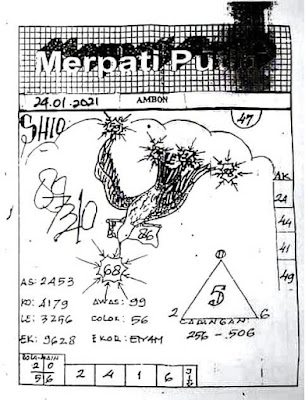 Merpati Putih
24.01.2021
AMBON
47
SHIO
AK
24
44
41
49
86
68
5
2
6
AS: 2453
KO: 4179
AWAS: 99
LE: 3296
COLOK: 56
CADANGAN
EK: 9628
EKOR: ENAM
256 - 506
BOLA MAIN
2 0
5 6
2
4
1
6